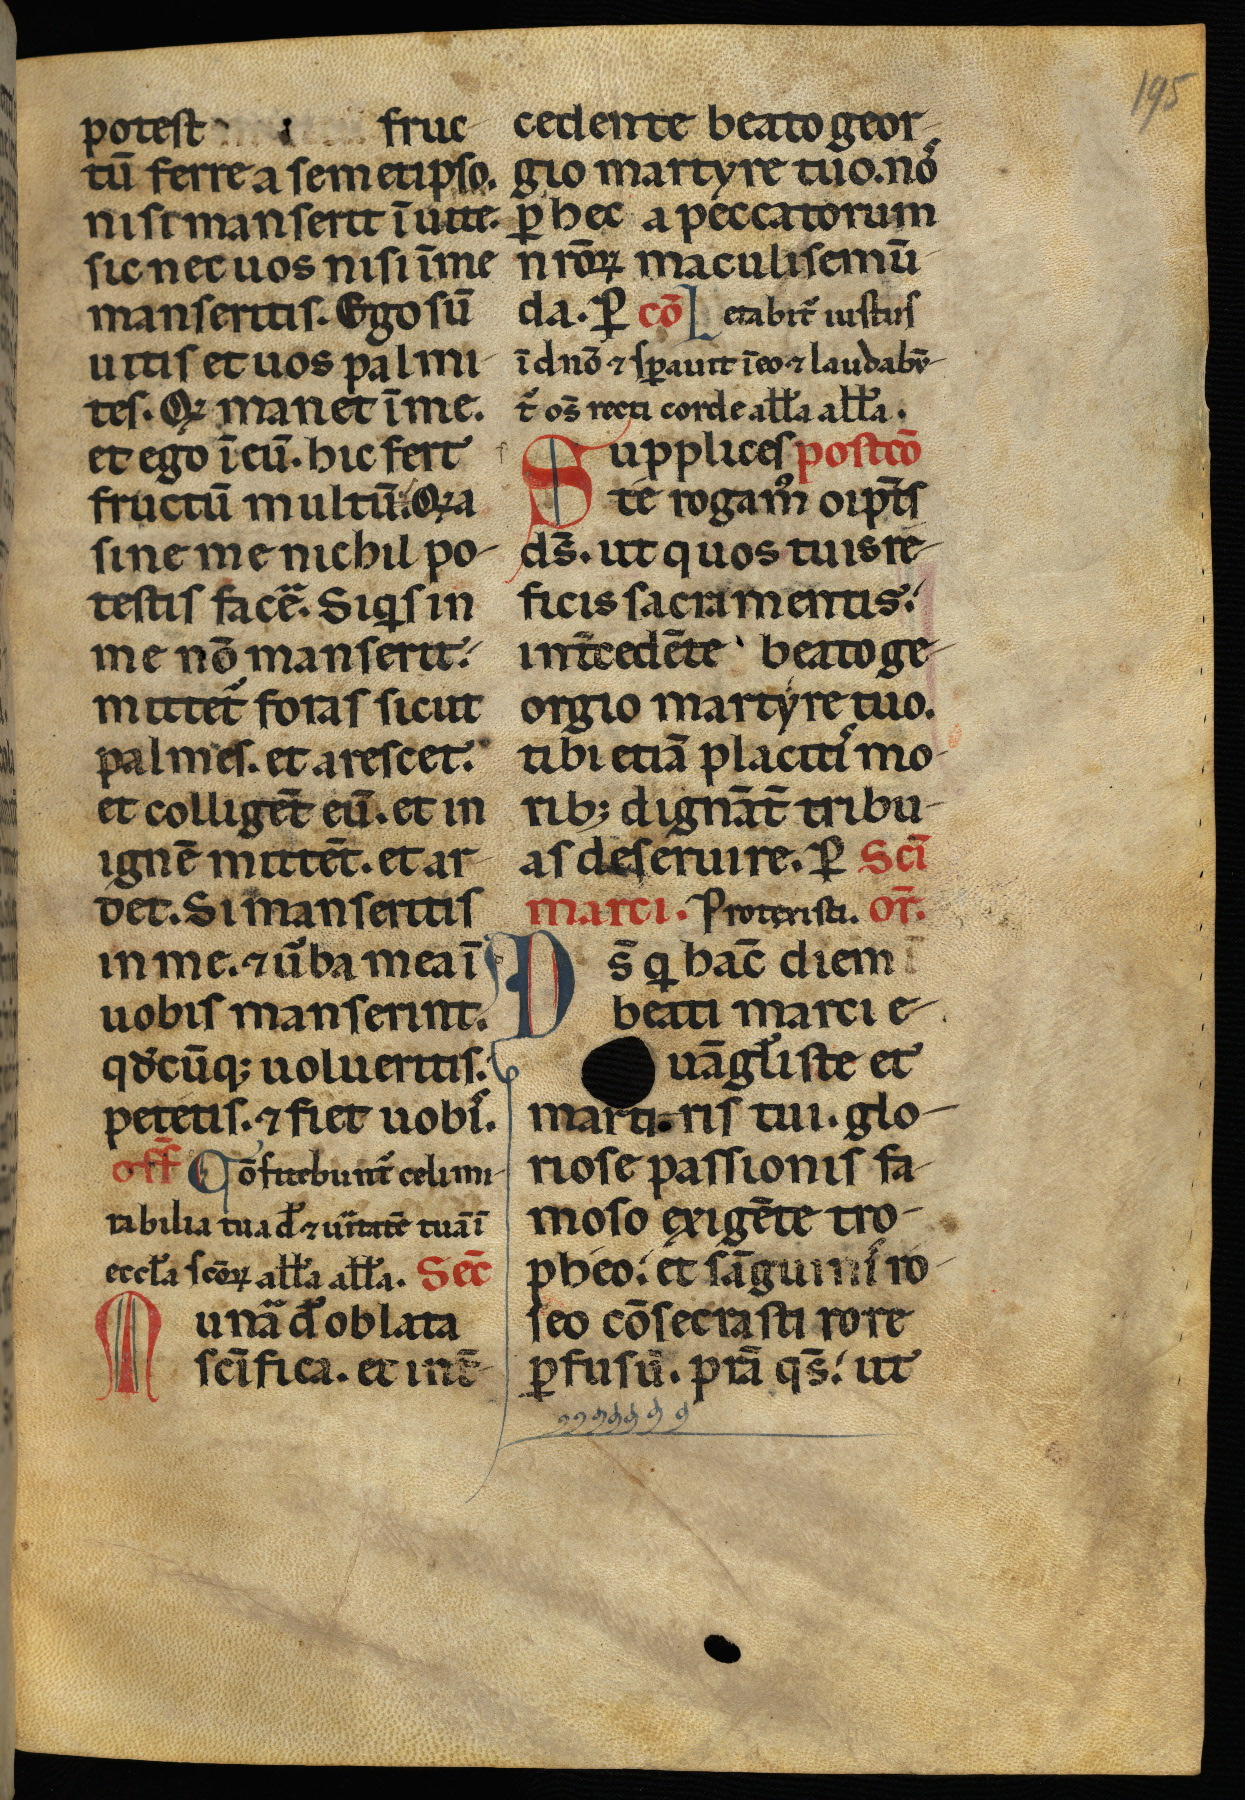 195
potest fruc
tū ferre a semetipso.
nisi manserit ī uite.
sic nec uos nisi ī me
manseritis. Ego sū
uitis et uos palmi
tes. Qꝛ manet ī me.
et ego ī eū. hic fert
fructū multū. Qꝛa
sine me nichil po-
testis facē. Siqͥs in
me nō manserit.
mittet᷑ foras sicut
palmes. et arescet.
et colligēt eū. et in
ignē mittēt. et ar
det. Si manseritis
in me. ⁊ ūba mea ī
uobis manserint.
qd̄cūqꝫ uolueritis.
petetis. ⁊ fiet uobis.
off̄ Cōfitebunt᷑ celi mi-
rabilia tua dē ⁊ uītatē tuā ī
eccl̄a scōꝝ all̄a all̄a. Sec̄
Munā dē oblata
sc̄ifica. et int̄-
cedente beato geor-
gio martyre tuo. nos
ꝑ hec a peccatorum
nrōꝝ maculis emū
da. P̄ cō Letabit᷑ iustus
ī dnō ⁊ sꝑauit ī eo ⁊ laudabū-
t᷑ os̄ recti corde all̄a all̄a.
Supplices postcō
te rogamꝰ oīpt̄s
ds̄. ut quos tuis re-
ficis sacramentis.
int̄cedēte beato ge-
orgio martyre tuo.
tibi etiā placitis mo-
ribꝫ dignāt̄ tribu-
as deseruire. P̄ Scī
marci. Protexisti. or̄.
Ds̄ qͥ hāc diem
beati marci e-
uāgl̄iste et
marti.ris tui. glo-
riose passionis fa-
moso exigēte tro-
pheo. et sāguinis ro-
seo cōsecrasti rore
ꝑfusū. pr̄a qs̄. ut